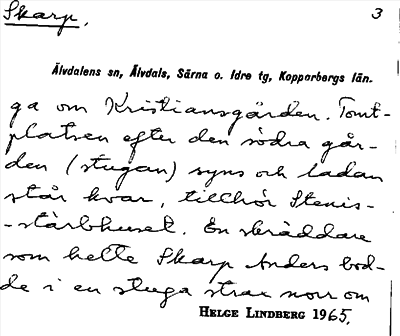 Skarp. 3
Älvdalens sn, Älvdals, Särna o. Idre tg, Kopparbergs län.
ga om Kristiansgården. Tomt-
platsen efter den södra går-
den (stugan) syns och ladan
står kvar, tillhör Stenis-
-stärbhuset. En skräddare
som hette Skarp Anders bod-
de i en stuga strax norr om
HELGE LINDBERG 1965.